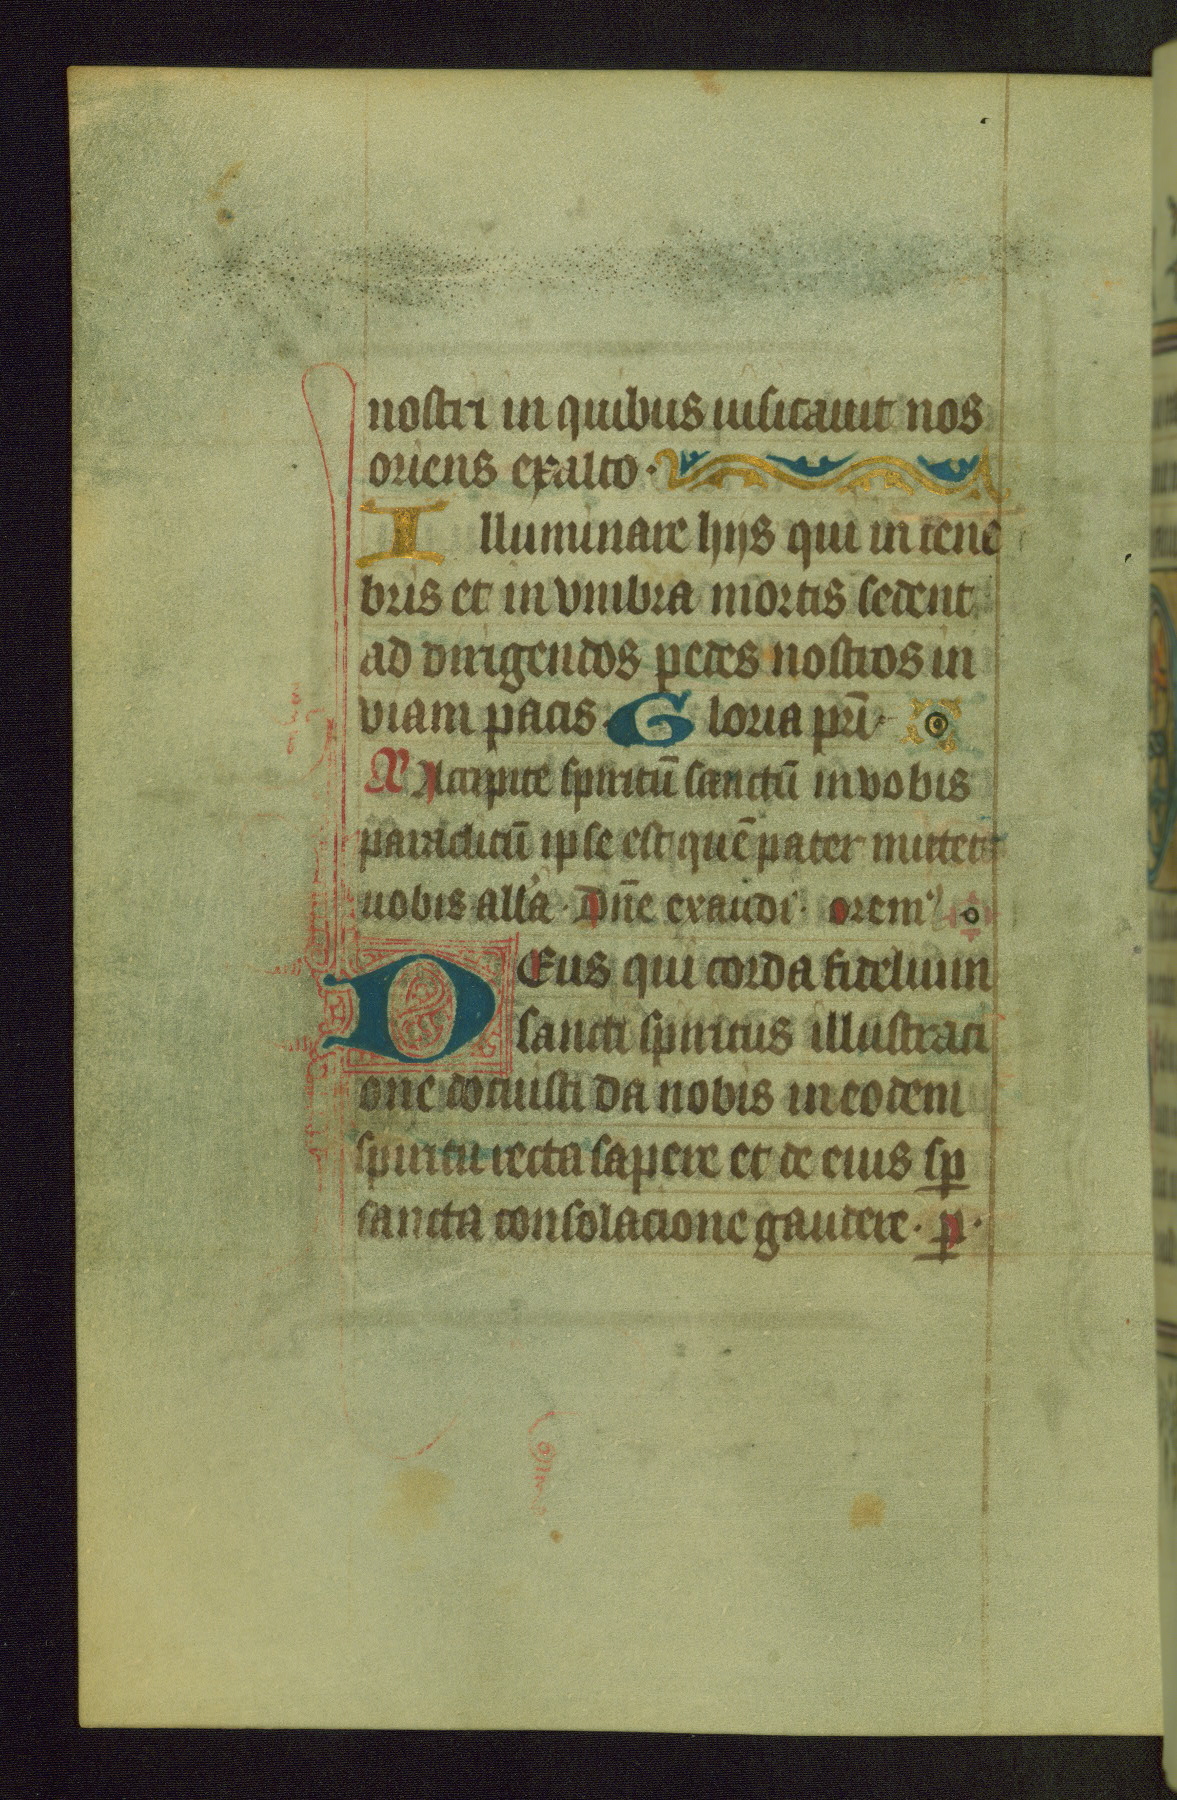 nostri in quibus uisitauit nos
oriens ex alto·
Illuminare hijs qui in tene
bris et in vmbra mortis sedent
ad dirigendos pedes nostros in
viam pacis· Gloria pr̄i·
A Accipite spiritū sanctū in vobis
paraclitū ipse est quē pater mittet
uobis all'a· Dn̄e exaudi· orem'
DEus qui corda fidelium
sancti spiritus illustraci
one docuisti da nobis in eodem
spiritu recta sapere et de eius sp̱
sancta consolacione gaudere· p̱·